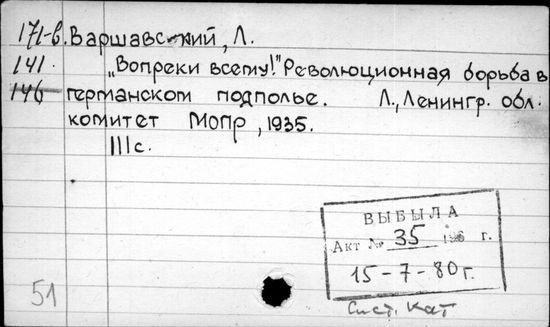 171-в. Варшавский, Л.
141. „Вопреки всему!" Революционная борьба в
146 германском подполье. Л., Ленингр. обл.
комитет Мопр, 1935.
111 с.
ВЫБЫЛА
Акт № 35 г.
15-7-80 г.
51
Сист. кат